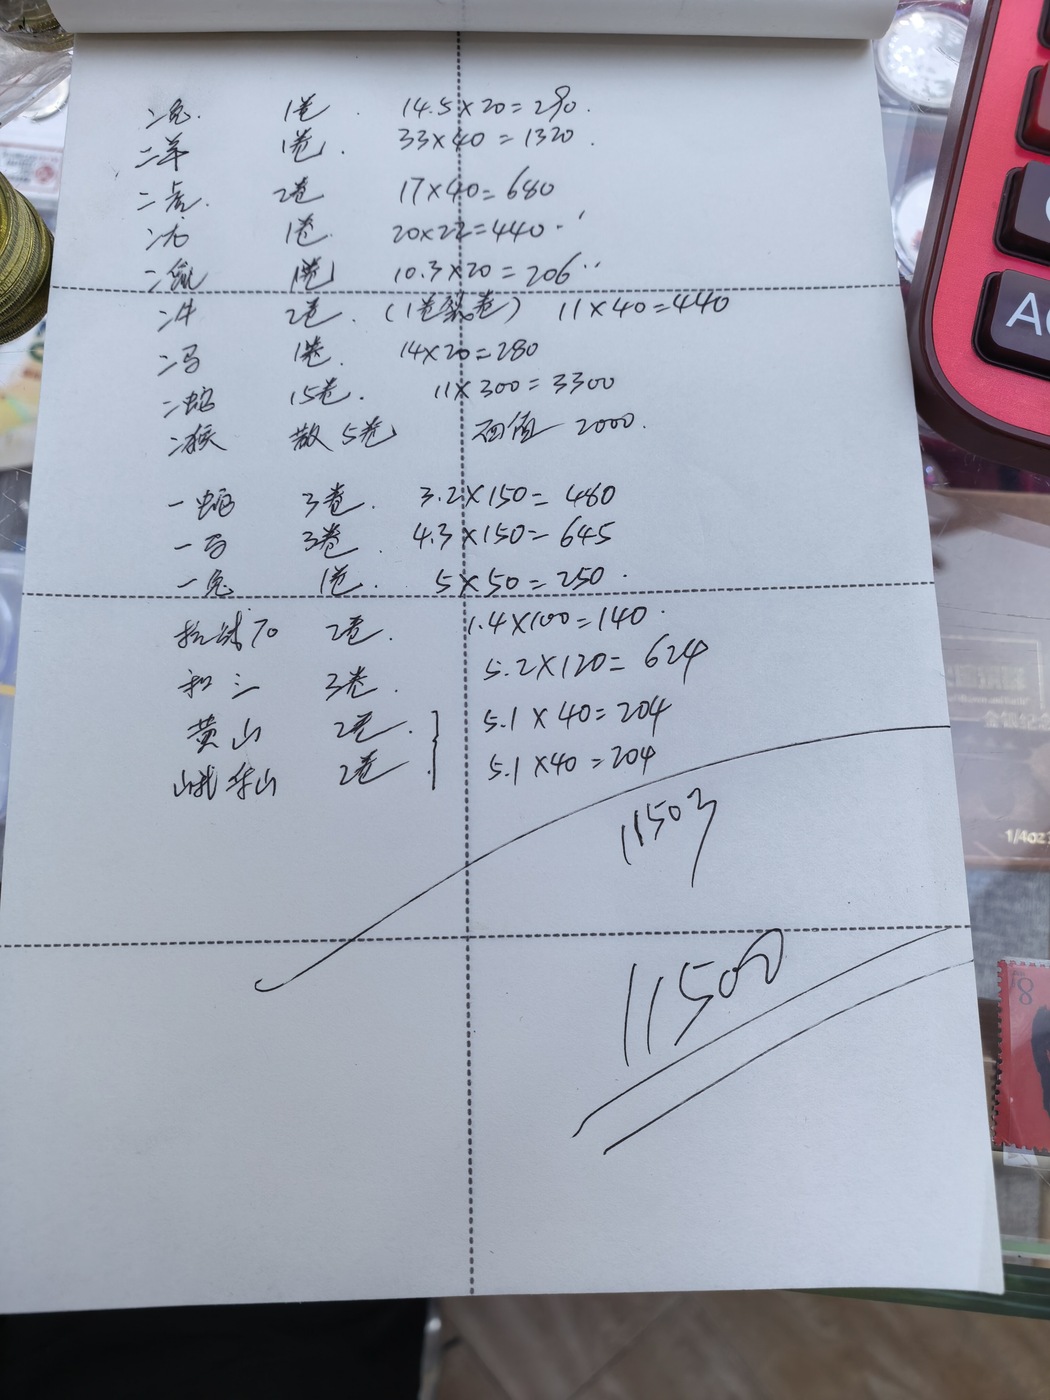 二兔. 1卷. 14.5×20=290.
二羊 1卷. 33×40=1320.
二虎. 2卷 17×40=680
二龙 1卷. 20×22=440.
二鼠 1卷 10.3×20=206
二牛 2卷. (1卷裂卷) 11×40=440
二马 1卷. 14×20=280
二蛇 15卷. 11×300=3300
二猴 散5卷 面值 2000.
一蛇 3卷. 3.2×150=480
一马 3卷. 4.3×150=645
一兔 1卷. 5×50=250.
抗战70 2卷. 1.4×100=140.
和三 3卷. 5.2×120=624
黄山 2卷. 5.1×40=204
峨眉山 2卷. 5.1×40=204
11503
11500
A
1/4oz
8